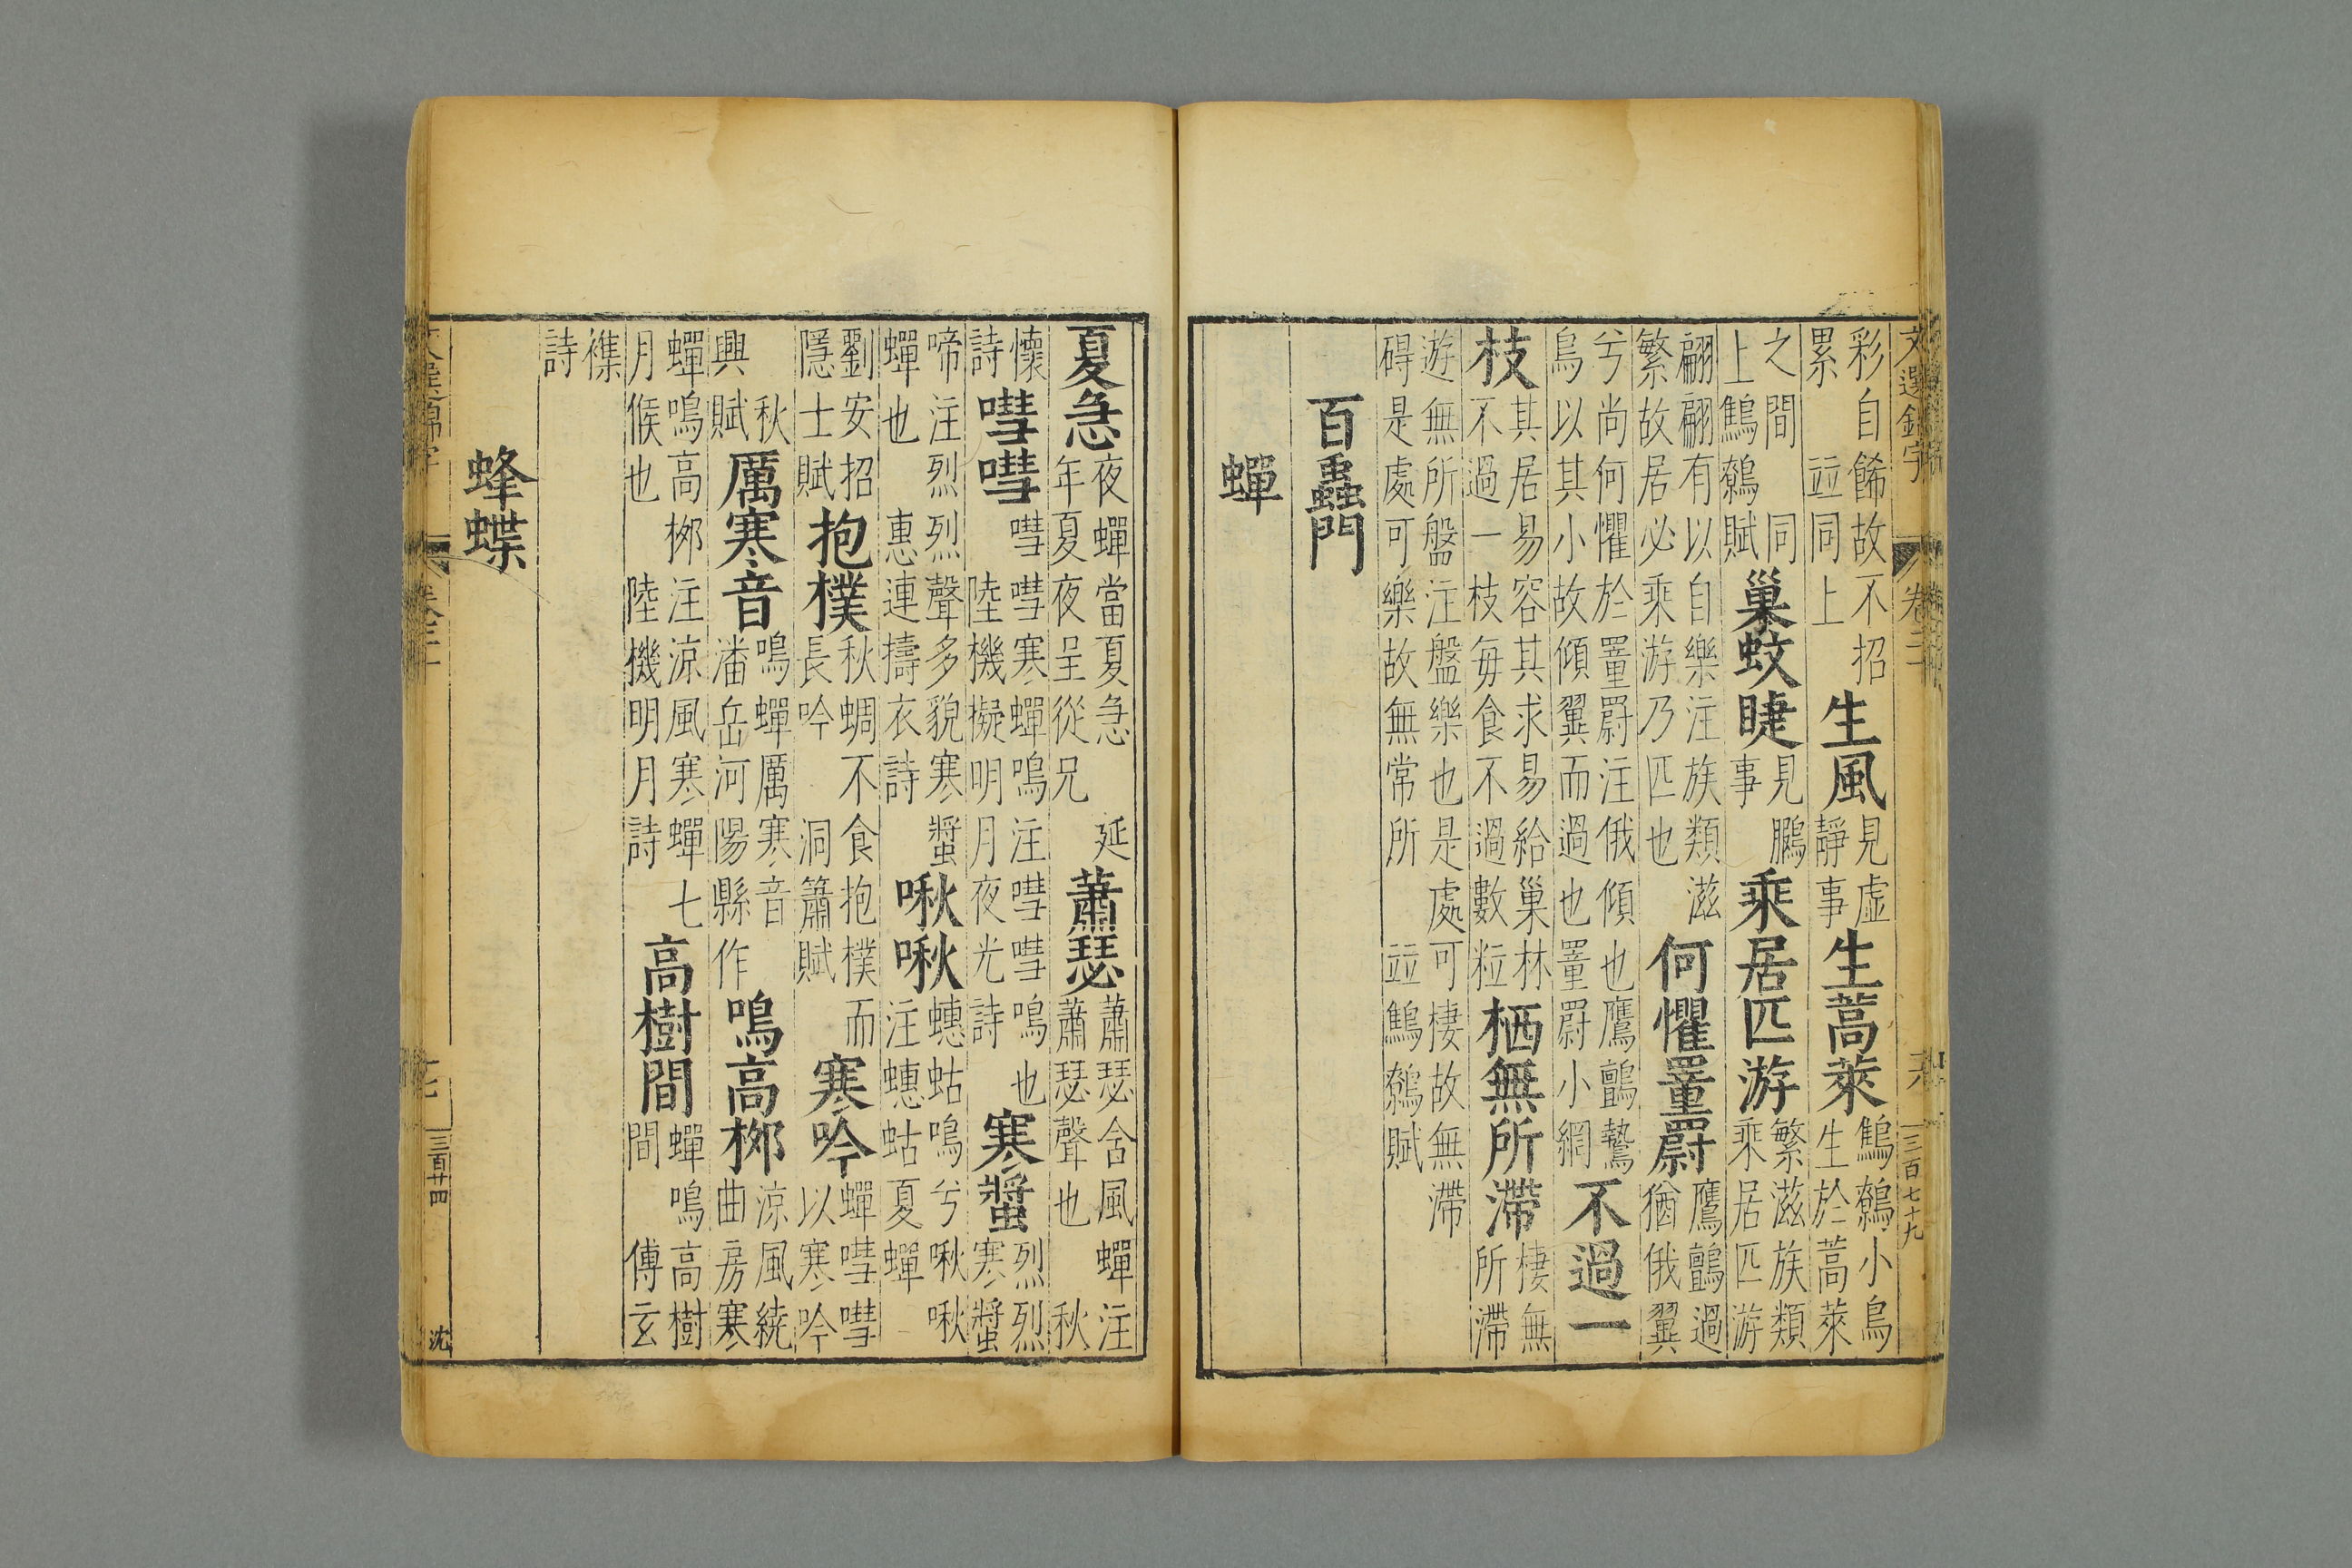 文選錦字 卷二十 十六 三百七十九
彩自餙故不招
累 竝同上
生風
見虛
靜事
生蒿萊
鷦鷯小鳥
生於蒿萊
之間 同
上鷦鷯賦
巢蚊睫
見鵬
事
乘居匹游
繁滋族類
乘居匹游
翩翩有以自樂注族類滋
繁故居必乘游乃匹也
何懼罿罻
鷹鸇過
猶俄翼
兮尚何懼於罿罻注俄傾也鷹鸇鷙
鳥以其小故傾翼而過也罿罻小網
不過一
枝
其居易容其求易給巢林
不過一枝每食不過數粒
栖無所滯
棲無
所滯
遊無所盤注盤樂也是處可棲故無滯
碍是處可樂故無常所 竝鷦鷯賦
百蟲門
蟬
夏急
夜蟬當夏急 延
年夏夜呈從兄
蕭瑟
蕭瑟含風蟬注
蕭瑟聲也 秋
懷
詩
嘒嘒
嘒嘒寒蟬鳴注嘒嘒鳴也
陸機擬明月夜光詩
寒螿
烈烈
寒螿
啼注烈烈聲多貌寒螿
蟬也 惠連擣衣詩
啾啾
蟪蛄鳴兮啾啾
注蟪蛄夏蟬
劉安招
隱士賦
抱樸
秋蜩不食抱樸而
長吟 洞簫賦
寒吟
蟬嘒嘒
以寒吟
秋
興賦
厲寒音
鳴蟬厲寒音
潘岳河陽縣作
鳴高桺
涼風繞
曲房寒
蟬鳴高桺注涼風寒蟬七
月候也 陸機明月詩
高樹間
蟬鳴高樹
間 傅玄
襍
詩
蜂蝶
文選錦字 卷二十 十七 三百廿四 沈